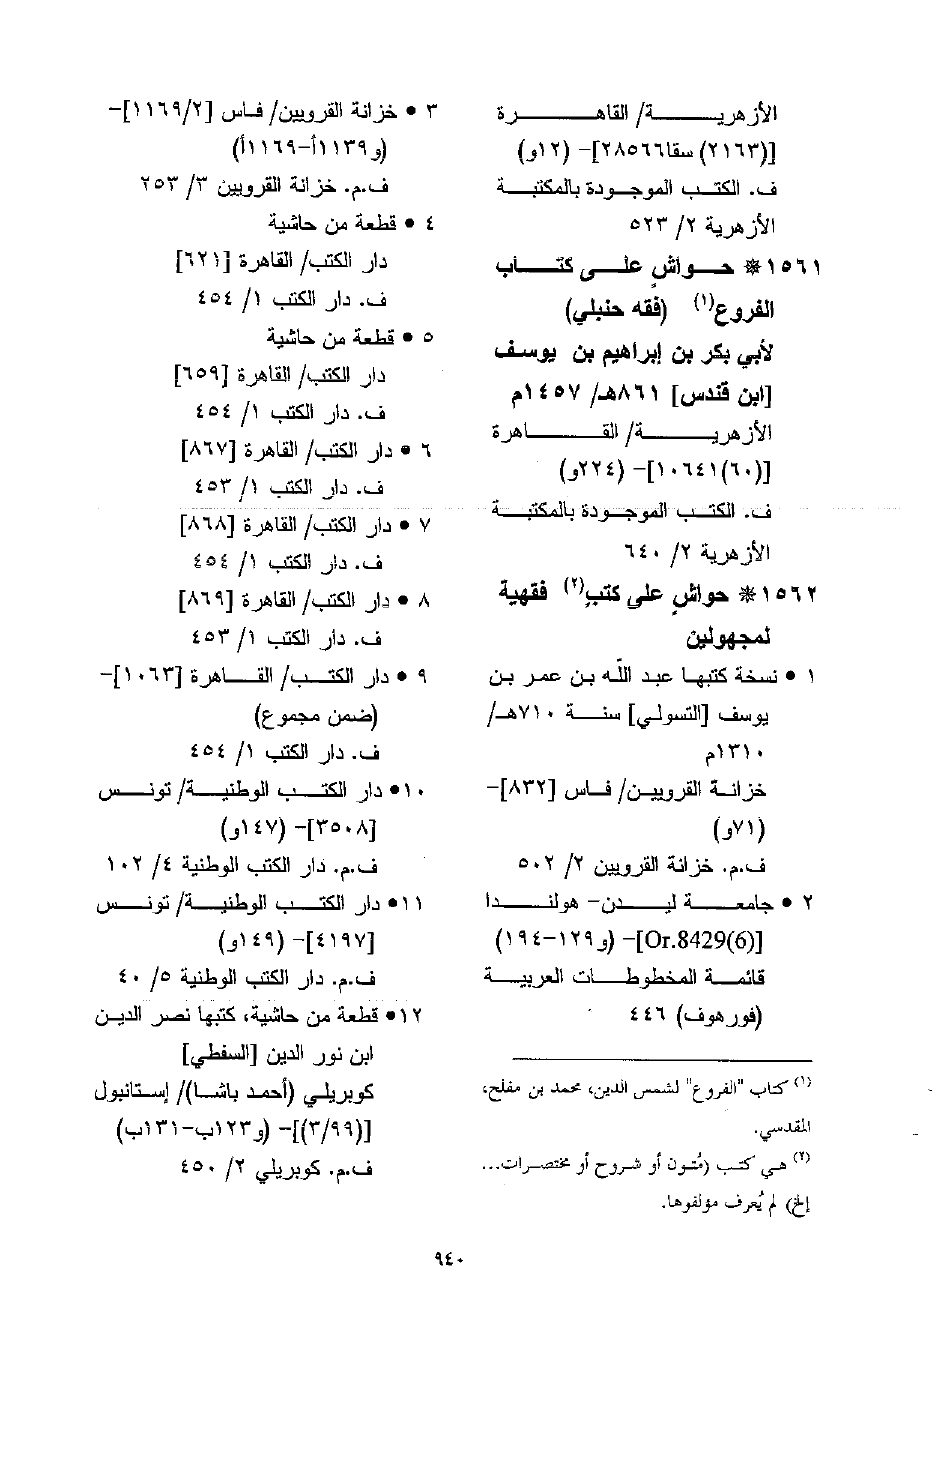 الأزهرية/ القاهرة
[(٢١٦٣) سقا٢٨٥٦٦]- (١٢و)
ف. الكتب الموجودة بالمكتبة
الأزهرية ٢/ ٥٢٣
١٥٦١* حواشٍ على كتاب
الفروع(١) (فقه حنبلي)
لأبي بكر بن إبراهيم بن يوسف
[ابن قندس] ٨٦١هـ/ ١٤٥٧م
الأزهرية/ القاهرة
[(٦٠)١٠٦٤١]- (٢٢٤و)
ف. الكتب الموجودة بالمكتبة
الأزهرية ٢/ ٦٤٠
١٥٦٢* حواشٍ على كتبٍ(٢) فقهية
لمجهولين
١ • نسخة كتبها عبد اللّه بن عمر بن
يوسف [التسولي] سنة ٧١٠هـ/
١٣١٠م
خزانة القرويين/ فاس [٨٣٢]-
(٧١و)
ف.م. خزانة القرويين ٢/ ٥٠٢
٢ • جامعة ليدن- هولندا
[Or.8429(6)]- (و١٢٩-١٩٤)
قائمة المخطوطات العربية
(فورهوف) ٤٤٦
(١) كتاب "الفروع" لشمس الدين، محمد بن مفلح،
المقدسي.
(٢) هي كتب (مُتون أو شروح أو مختصرات...
إلخ) لم يُعرف مؤلفوها.
٣ • خزانة القرويين/ فاس [١١٦٩/٢]-
(و١١٣٩أ-١١٦٩أ)
ف.م. خزانة القرويين ٣/ ٢٥٣
٤ • قطعة من حاشية
دار الكتب/ القاهرة [٦٢١]
ف. دار الكتب ١/ ٤٥٤
٥ • قطعة من حاشية
دار الكتب/ القاهرة [٦٥٩]
ف. دار الكتب ١/ ٤٥٤
٦ • دار الكتب/ القاهرة [٨٦٧]
ف. دار الكتب ١/ ٤٥٣
٧ • دار الكتب/ القاهرة [٨٦٨]
ف. دار الكتب ١/ ٤٥٤
٨ • دار الكتب/ القاهرة [٨٦٩]
ف. دار الكتب ١/ ٤٥٣
٩ • دار الكتب/ القاهرة [١٠٦٣]-
(ضمن مجموع)
ف. دار الكتب ١/ ٤٥٤
١٠• دار الكتب الوطنية/ تونس
[٣٥٠٨]- (١٤٧و)
ف.م. دار الكتب الوطنية ٤/ ١٠٢
١١• دار الكتب الوطنية/ تونس
[٤١٩٧]- (١٤٩و)
ف.م. دار الكتب الوطنية ٥/ ٤٠
١٢• قطعة من حاشية، كتبها نصر الدين
ابن نور الدين [السفطي]
كوبريلي (أحمد باشا)/ إستانبول
[(٣/٩٩)]- (و١٢٣ب-١٣١ب)
ف.م. كوبريلي ٢/ ٤٥٠
٩٤٠